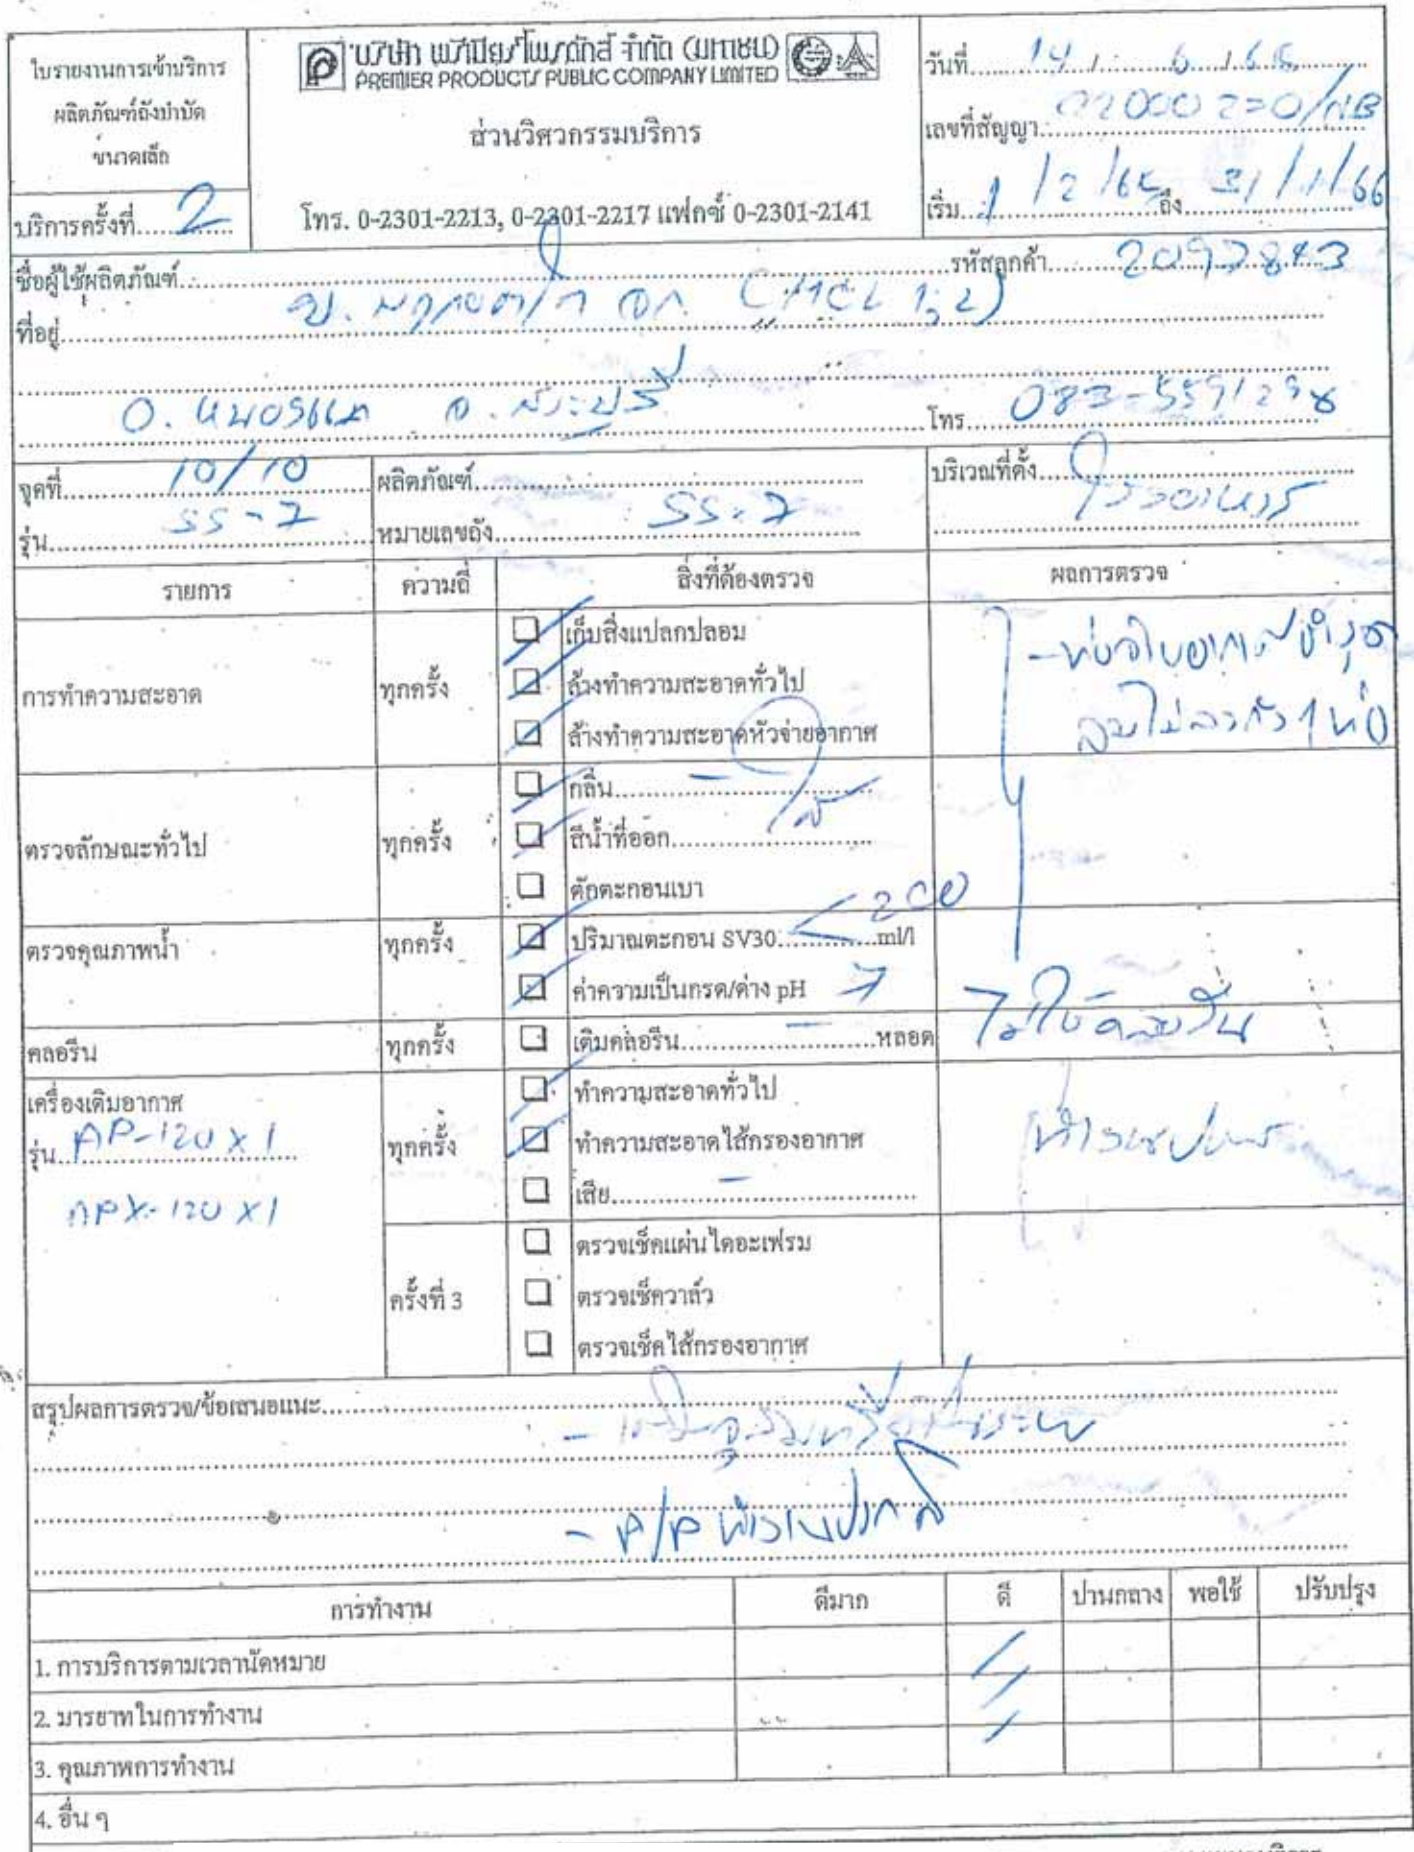 ใบรายงานการเข้าบริการ
ผลิตภัณฑ์ถังบำบัด
ขนาดเล็ก
บริการครั้งที่ 2
บริษัท พรีเมียร์โพรดักส์ จำกัด (มหาชน)
PREMIER PRODUCTS PUBLIC COMPANY LIMITED
ส่วนวิศวกรรมบริการ
โทร. 0-2301-2213, 0-2301-2217 แฟกซ์ 0-2301-2141
วันที่ 14 / 6 / 65
เลขที่สัญญา
เริ่ม 1/2/65 ถึง 31/1/66
ชื่อผู้ใช้ผลิตภัณฑ์
รหัสลูกค้า 2097843
ที่อยู่
อ. หนองแค จ. สระบุรี
โทร 083-5591298
จุดที่ 10/10
รุ่น SS-7
ผลิตภัณฑ์
หมายเลขถัง SS-7
บริเวณที่ตั้ง โรงอาหาร
รายการ ความถี่ สิ่งที่ต้องตรวจ ผลการตรวจ
การทำความสะอาด ทุกครั้ง
เก็บสิ่งแปลกปลอม
ล้วงทำความสะอาดทั่วไป
ล้างทำความสะอาดหัวจ่ายอากาศ
ตรวจลักษณะทั่วไป ทุกครั้ง
กลิ่น -
สีน้ำที่ออก ใส
ตักตะกอนเบา
ตรวจคุณภาพน้ำ ทุกครั้ง
ปริมาณตะกอน SV30 <200 ml/l
ค่าความเป็นกรด/ด่าง pH 7
คลอรีน ทุกครั้ง เติมคลอรีน - หลอด ไม่ใช้คลอรีน
เครื่องเติมอากาศ
รุ่น AP-120 x 1
APX-120 x 1
ทุกครั้ง
ทำความสะอาดทั่วไป
ทำความสะอาดไส้กรองอากาศ
เสีย -
ทำงานปกติ
ครั้งที่ 3
ตรวจเช็คแผ่นไดอะเฟรม
ตรวจเช็ควาล์ว
ตรวจเช็คไส้กรองอากาศ
สรุปผลการตรวจ/ข้อเสนอแนะ
- A/P ทำงานปกติ
การทำงาน ดีมาก ดี ปานกลาง พอใช้ ปรับปรุง
1. การบริการตามเวลานัดหมาย /
2. มารยาทในการทำงาน /
3. คุณภาพการทำงาน /
4. อื่น ๆ